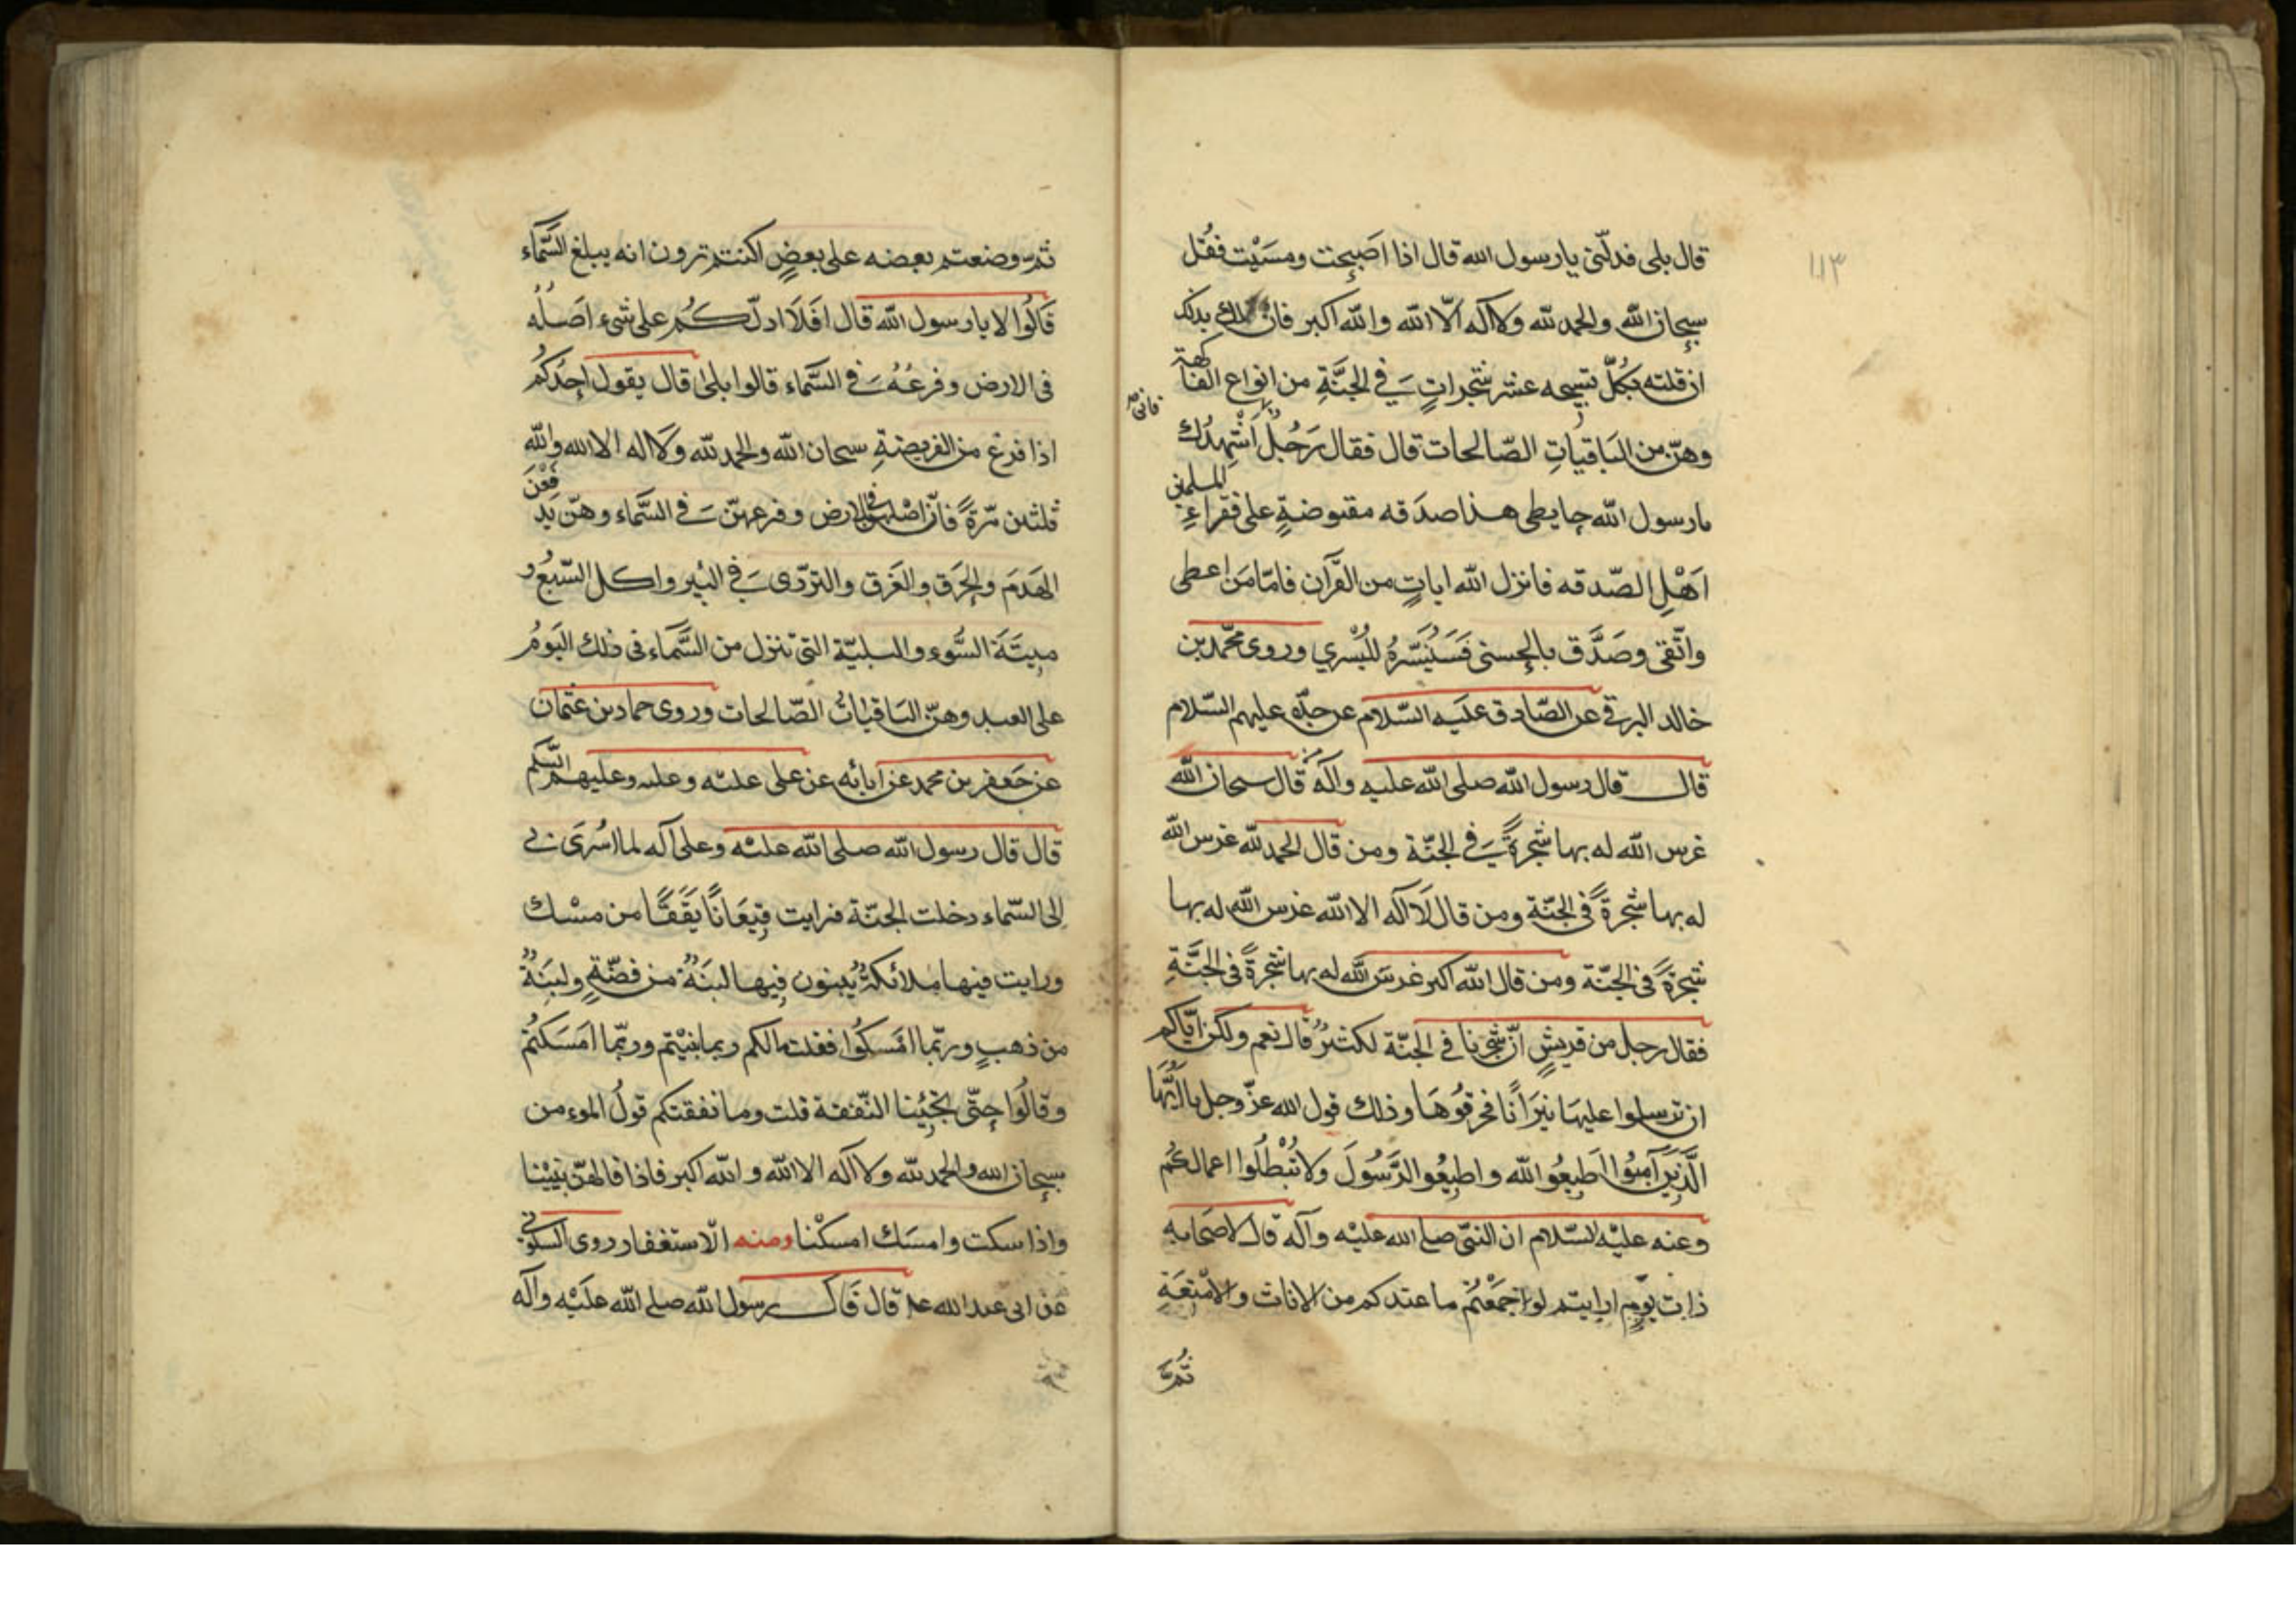 ١١٣
قال بلى فدلّنى يا رسول الله قال اذا اصبحت ومسَيْت فقُل
سبحان الله والحمد لله ولا اله الّا الله والله اكبر فان لك بذلك
ان قلته بكُلّ تسبيحه عشر شجراتٍ فى الجنَّةِ من انواع الفاكهة
فانى
وهنّ من الباقياتِ الصّالحات قال فقال رَجُلٌ اُشْهِدُك
يا رسول الله حايطى هذا صدقه مقبوضةٍ على فقراءِ المسلمين
اَهْلِ الصّدقه فانزل الله اياتٍ من القرآن فامّا مَن اعطى
واتّقى وصَدَّق بالحسنى فَسَنُيَسّرُهُ لليُسْري وروى محمّد بن
خالد البرقى عن الصّادق علَيه السّلام عن جدّه عليهم السّلام
قال قال رسول الله صلى الله عليه وآله قال سبحان الله
غرس الله له بها شجرةً فى الجنّة ومن قال الحمد لله غرس الله
له بها شجرةً فى الجنّة ومن قال لا اله الا الله غرس الله له بها
شجرةً فى الجنّة ومن قال الله اكبر غرسَ الله له بها شجرةً فى الجنَّةِ
فقال رجل من قريشٍ انّ شجرنا فى الجنّة لكثيرٌ قال نعم ولكن ايّاكم
ان ترسلوا عليهَا نيرَانًا فحرقُوهَا وذلك قول الله عزّ وجل يا اَيُّهَا
الَّذِينَ آمنُوا اَطِيعُوا الله واطيعُوا الرَّسُولَ ولا تُبْطلُوا اعمالكُم
وعنه عليْه السّلام ان النبّى صلى الله عليْه وآله قال لاصحَابه
ذات يَوْمٍ ارايتم لو جمَعْتُم ما عندكم من الاثاث والامْتِعَةِ
ثُمَّ
ثمّ وضعتم بعضه على بعضٍ اكنتم ترون انه يبلغ السَّمَاء
قالُوا لا يا رسول الله قال افَلَا ادلّكُم على شىء اصَلُه
فى الارض وفرعُهُ فى السَّماء قالوا بلى قال يقول احدُكُم
اذا فرغ من الفريضةِ سبحان الله والحمد لله ولا اله الا الله والله
ثلثين مّرةً فانّ اصْلهنّ فى الارض وفرعهنّ فى السَّماء وهنّ يدفَعْنَ
الهَدَمَ والحَرَق والغَرَق والتردّى فى البئر واكل السّبُع و
مِيتَةَ السُّوء والبليّة التى تنزل من السَّماء فى ذلك اليَومُ
على العبد وهنّ الباقياتُ الصّالحات وروى حماد بن عثمان
عن جَعفر بن محمد عن ابائه عن على عليْه وعليهم السّلم
قال قال رسول الله صلى الله عليْه وعلى آله لما اسُرى بى
الى السّماء دخلت الجنّة فرايت قِيعَانًا يَقَقًا من مسْك
ورايت فيها ملائكةً يُبنون فيها لبنَةً من فضّةٍ ولبنَةً
من ذهبٍ وربّما امْسَكُوا فقلت مالكم ربما بنيْتم وربّما امَسَكتُم
وقالُوا حتّى تجيْئنا النّفقة قلت وما نفقتكم قولُ الموءمن
سبحان الله والحمد لله ولا اله الا الله والله اكبر فاذا قالهنّ بنيْنا
واذا سكت وامسَك امسكْنا ومنه الّاستغفار روى السكونى
عن ابى عبد الله عم قال قَال رسول الله صلى الله عليْه وآله